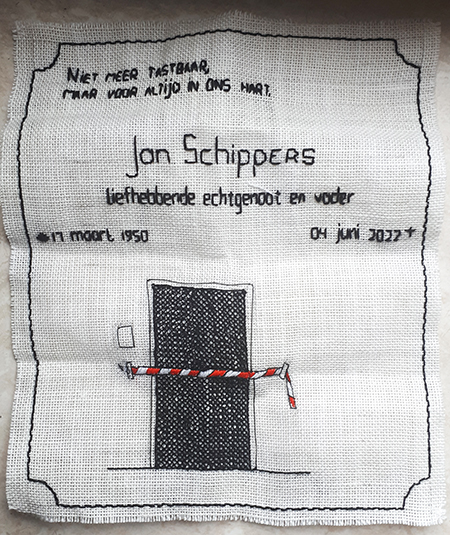 NIET MEER TASTBAAR,
MAAR VOOR ALTIJD IN ONS HART.
Jan SCHIPPERS
liefhebbende echtgenoot en vader
*17 maart 1950
04 juni 2022+